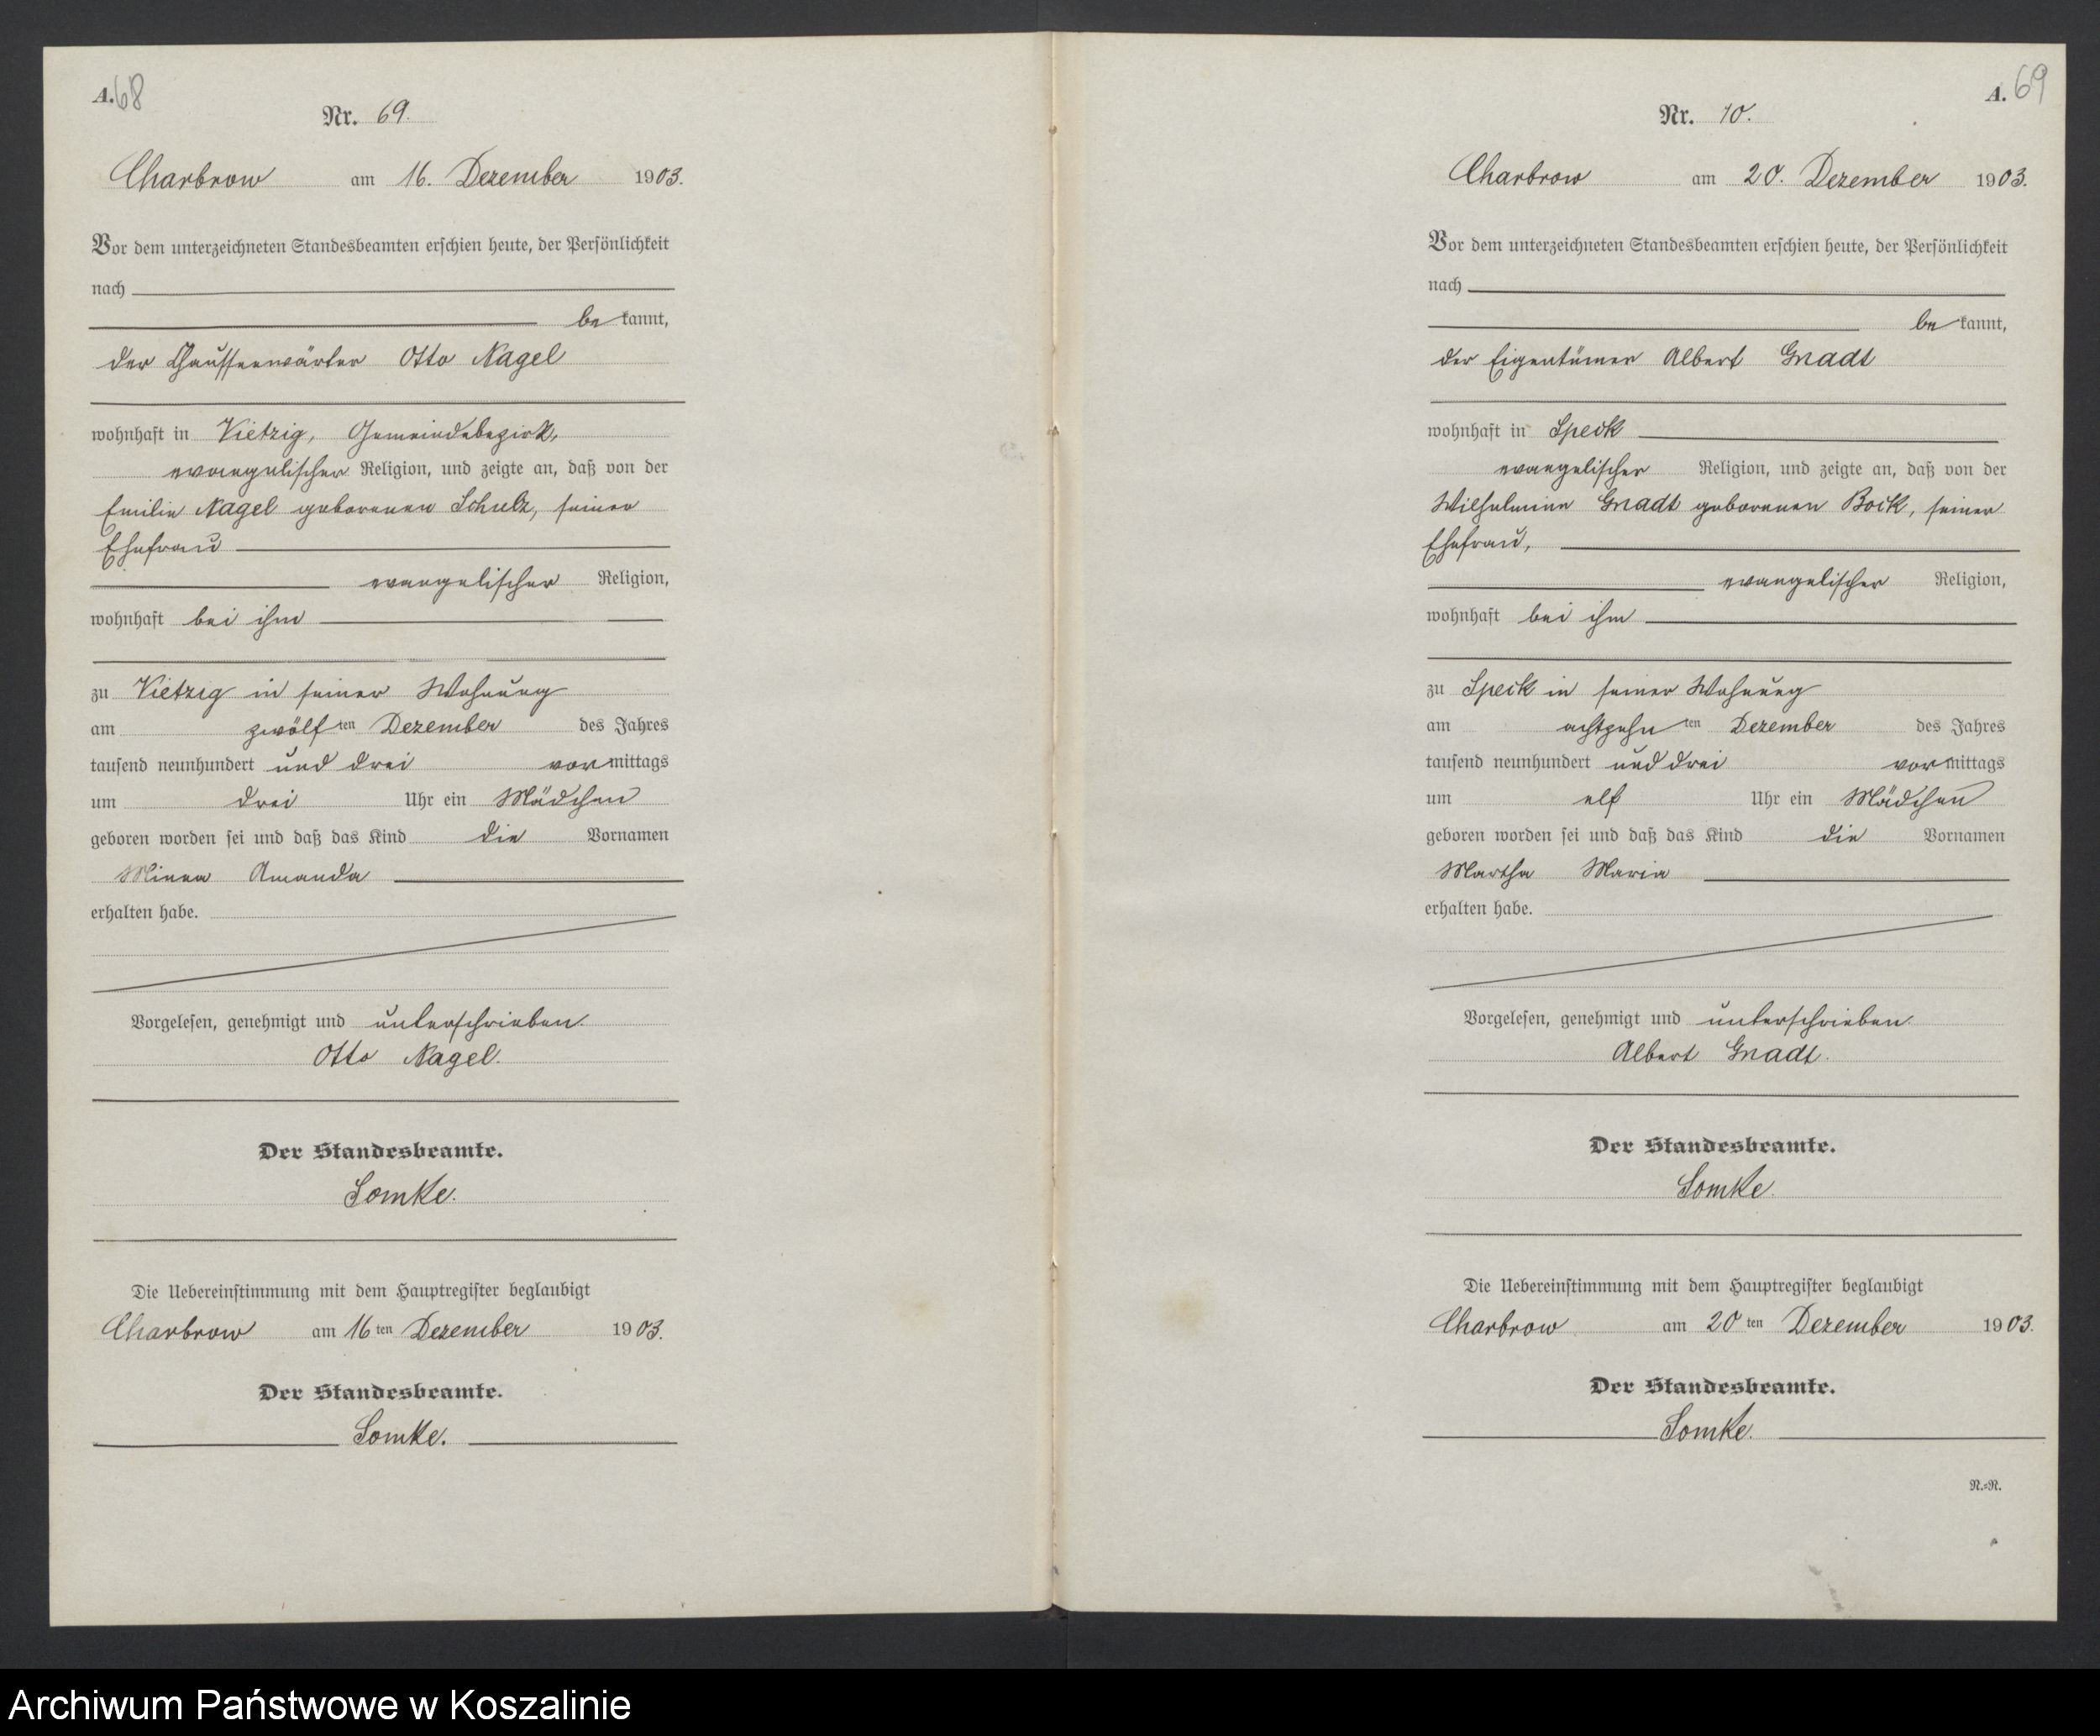 A. 68
Nr. 69.
Charbrow am 16. Dezember 1903.
Vor dem unterzeichneten Standesbeamten erschien heute, der Persönlichkeit
nach
be kannt,
der Chausseewärter Otto Nagel
wohnhaft in Vietzig, Gemeindebezirk,
evangelischer Religion, und zeigte an, daß von der
Emilie Nagel geborenen Schulz, seiner
Ehefrau
evangelischer Religion,
wohnhaft bei ihm
zu Vietzig in seiner Wohnung
am zwölf ten Dezember des Jahres
tausend neunhundert und drei vor mittags
um drei Uhr ein Mädchen
geboren worden sei und daß das Kind die Vornamen
Minna Amanda
erhalten habe.
Vorgelesen, genehmigt und unterschrieben.
Otto Nagel.
Der Standesbeamte.
Somke.
Die Uebereinstimmung mit dem Hauptregister beglaubigt
Charbrow am 16 ten Dezember 1903.
Der Standesbeamte.
Somke.
A. 69
Nr. 70.
Charbrow am 20. Dezember 1903.
Vor dem unterzeichneten Standesbeamten erschien heute, der Persönlichkeit
nach
be kannt,
der Eigentümer Albert Gnadt
wohnhaft in Speck
evangelischer Religion, und zeigte an, daß von der
Wilhelmine Gnadt geborenen Bock, seiner
Ehefrau,
evangelischer Religion,
wohnhaft bei ihm
zu Speck in seiner Wohnung
am achtzehn ten Dezember des Jahres
tausend neunhundert und drei vor mittags
um elf Uhr ein Mädchen
geboren worden sei und daß das Kind die Vornamen
Martha Maria
erhalten habe.
Vorgelesen, genehmigt und unterschrieben.
Albert Gnadt.
Der Standesbeamte.
Somke.
Die Uebereinstimmung mit dem Hauptregister beglaubigt
Charbrow am 20 ten Dezember 1903.
Der Standesbeamte.
Somke.
N.=N.
Archiwum Państwowe w Koszalinie